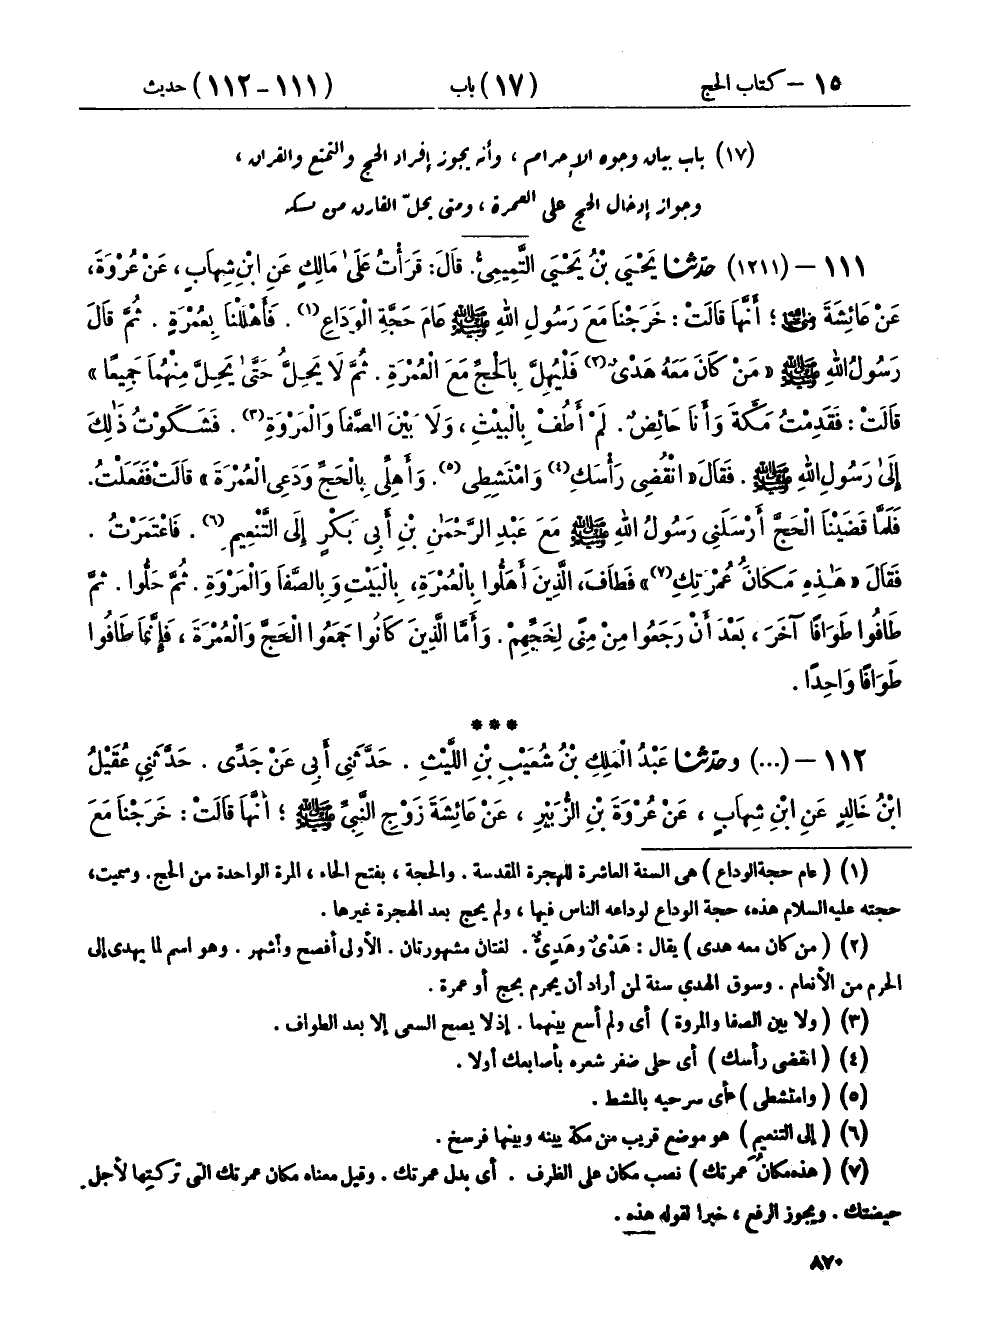 ١٥ – كتاب الحج (١٧) باب (١١١-١١٢) حديث
(١٧) باب بيان وجوه الإحرام ، وأنه يجوز إفراد الحج والتمتع والقران ،
وجواز إدخال الحج على العمرة ، ومتى يحلّ القارن من نسكه
١١١ – (١٢١١) حَدَّثَنَا يَحْيَى بْنُ يَحْيَى التَّمِيمِىُّ. قَالَ: قَرَأْتُ عَلَى مَالِكٍ عَنِ ابْنِ شِهَابٍ ، عَنْ عُرْوَةَ،
عَنْ عَائِشَةَ رضي الله عنها ؛ أَنَّهَا قَالَتْ : خَرَجْنَا مَعَ رَسُولِ اللهِ ﷺ عَامَ حَجَّةِ الْوَدَاعِ(١) . فَأَهْلَلْنَا بِعُمْرَةٍ . ثُمَّ قَالَ
رَسُولُ اللهِ ﷺ « مَنْ كَانَ مَعَهُ هَدْىٌ(٢) فَلْيُهِلَّ بِالْحَجِّ مَعَ الْعُمْرَةِ . ثُمَّ لَا يَحِلُّ حَتَّى يَحِلَّ مِنْهُمَا جَمِيعًا »
قَالَتْ : فَقَدِمْتُ مَكَّةَ وَأَنَا حَائِضٌ. لَمْ أَطُفْ بِالْبَيْتِ ، وَلَا بَيْنَ الصَّفَا وَالْمَرْوَةِ(٣) . فَشَكَوْتُ ذَلِكَ
إِلَى رَسُولِ اللهِ ﷺ . فَقَالَ « انْقُضِى رَأْسَكِ(٤) وَامْتَشِطِى(٥). وَأَهِلِّى بِالْحَجِّ وَدَعِى الْعُمْرَةَ » قَالَتْ فَفَعَلْتُ.
فَلَمَّا قَضَيْنَا الْحَجَّ أَرْسَلَنِى رَسُولُ اللهِ ﷺ مَعَ عَبْدِ الرَّحْمَنِ بْنِ أَبِى بَكْرٍ إِلَى التَّنْعِيمِ(٦) . فَاعْتَمَرْتُ .
فَقَالَ « هَذِهِ مَكَانُ عُمْرَتِكِ(٧)» فَطَافَ، الَّذِينَ أَهَلُّوا بِالْعُمْرَةِ، بِالْبَيْتِ وَبِالصَّفَا وَالْمَرْوَةِ . ثُمَّ حَلُّوا . ثُمَّ
طَافُوا طَوَافًا آخَرَ ، بَعْدَ أَنْ رَجَعُوا مِنْ مِنًى لِحَجِّهِمْ. وَأَمَّا الَّذِينَ كَانُوا جَمَعُوا الْحَجَّ وَالْعُمْرَةَ ، فَإِنَّمَا طَافُوا
طَوَافًا وَاحِدًا .
***
١١٢ – (...) وحَدَّثَنَا عَبْدُ الْمَلِكِ بْنُ شُعَيْبِ بْنِ اللَّيْثِ . حَدَّثَنِى أَبِى عَنْ جَدِّى . حَدَّثَنِى عُقَيْلُ
ابْنُ خَالِدٍ عَنِ ابْنِ شِهَابٍ ، عَنْ عُرْوَةَ بْنِ الزُّبَيْرِ ، عَنْ عَائِشَةَ زَوْجِ النَّبِىِّ ﷺ ؛ أَنَّهَا قَالَتْ : خَرَجْنَا مَعَ
(١) ( عام حجة الوداع ) هى السنة العاشرة للهجرة المقدسة . والحجة ، بفتح الحاء ، المرة الواحدة من الحج. وسميت،
حجته عليه السلام هذه، حجة الوداع لوداعه الناس فيها ، ولم يحج بعد الهجرة غيرها .
(٢) ( من كان معه هدى ) يقال : هَدْىٌ وهَدِىٌّ . لغتان مشهورتان . الأولى أفصح وأشهر . وهو اسم لما يهدى إلى
الحرم من الأنعام . وسوق الهدي سنة لمن أراد أن يحرم بحج أو عمرة .
(٣) ( ولا بين الصفا والمروة ) أى ولم أسع بينهما . إذ لا يصح السعى إلا بعد الطواف .
(٤) ( انقضى رأسك ) أى حلى ضفر شعره بأصابعك أولا .
(٥) ( وامتشطى ) أى سرحيه بالمشط .
(٦) ( إلى التنعيم ) هو موضع قريب من مكة بينه وبينها فرسخ .
(٧) ( هذه مكانُ عمرتك ) نصب مكان على الظرف . أى بدل عمرتك . وقيل معناه مكان عمرتك التى تركتها لأجل
حيضتك . ويجوز الرفع ، خبرا لقوله هذه .
٨٧٠